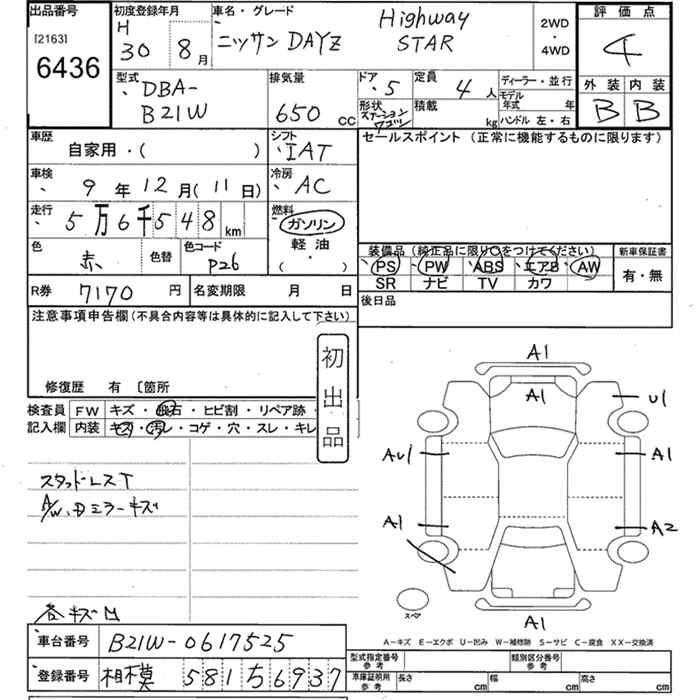 出品番号
[2163]
6436
初度登録年月
H 30 8月
車名・グレード
ニッサン DAYZ Highway STAR
2WD・4WD
評価点
4
外装 内装
B B
型式
DBA-
B21W
排気量
650 CC
ドア・5
形状
ステーションワゴン
定員
4人
積載 kg
ディーラー・並行
モデル年式 年
ハンドル 左・右
車歴
自家用・( )
シフト
IAT
セールスポイント (正常に機能するものに限ります)
車検
9年12月(11日)
冷房
AC
走行
5万6千548km
燃料
ガソリン
軽油
・( )
色
赤
色替
色コード
P26
装備品 (純正品に限り○をつけてください)
PS PW ABS エアB AW
SR ナビ TV カワ
新車保証書
有・無
R券 7170円
名変期限 月 日
後日品
注意事項申告欄(不具合内容等は具体的に記入して下さい)
修復歴 有 〔箇所
初出品
検査員記入欄
FW キズ・飛石・ヒビ割・リペア跡・
内装 キズ・汚レ・コゲ・穴・スレ・キレ
スタッドレスT
A/W、Dミラーキズ
各キズ凹
A1
A1
U1
AU1
A1
A1
A2
スペア
A1
A−キズ E−エクボ U−凹み W−補修跡 S−サビ C−腐食 XX−交換済
車台番号 B21W-0617525
登録番号 相模 581 ち 6937
型式指定番号 参考
類別区分番号 参考
車庫証明用 参考 長さ cm 幅 cm 高さ cm